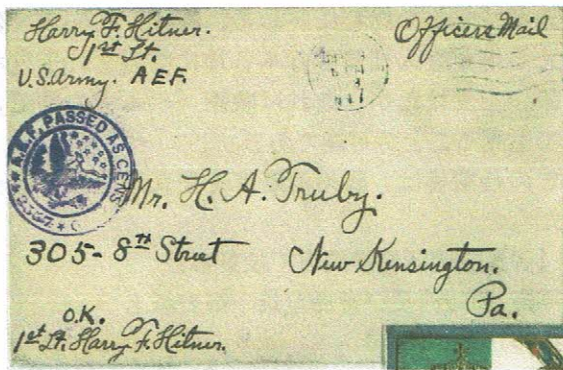 Harry F. Hitner.
1st Lt.
U.S. Army. A.E.F.
Officers Mail
A.E.F. PASSED AS CENS
Mr. H. A. Truby.
305 - 8TH Street
New Kensington.
Pa.
O.K.
1st Lt. Harry F. Hitner.